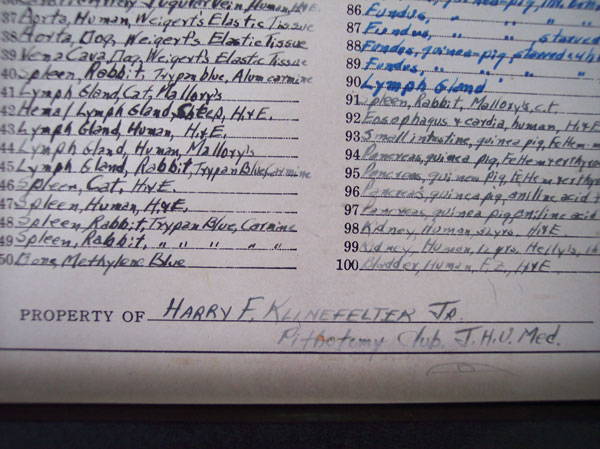 Jugular Vein, Human, H&E.
37 Aorta, Human, Weigert's Elastic Tissue
38 Aorta, Dog, Weigert's Elastic Tissue
39 Vena Cava, Dog, Weigert's Elastic Tissue
40 Spleen, Rabbit, Trypan blue, Alum carmine
41 Lymph Gland, Cat, Mallory's
42 Hemal Lymph Gland, Sheep, H&E.
43 Lymph Gland, Human, H.&E.
44 Lymph Gland, Human, Mallory's
45 Lymph Gland, Rabbit, Trypan Blue, Carmine
46 Spleen, Cat, H&E.
47 Spleen, Human, H&E.
48 Spleen, Rabbit, Trypan Blue, Carmine
49 Spleen, Rabbit, " " " "
50 Bone, Methylene Blue
guinea-pig,
86. Fundus, " "
87. Fundus, " " starved
88. Fundus, guinea-pig, starved
89. Fundus, " " "
90. Lymph Gland
91. Spleen, Rabbit, Mallory's c.t.
92. Eosophagus & cardia, human, H&E
93. Small intestine, guinea pig, Fe Hem
94. Pancreas, guinea pig, Fe Hem
95. Pancreas, guinea pig, Fe Hem
96. Pancreas, guinea pig, aniline acid
97. Pancreas, guinea pig, aniline acid
98. Kidney, Human, yrs, H&E
99. Kidney, Human, 12 yrs. Helly's,
100. Bladder, Human, F2, H&E
PROPERTY OF HARRY F. KLINEFELTER JR.
Pithotomy Club. J.H.U. Med.